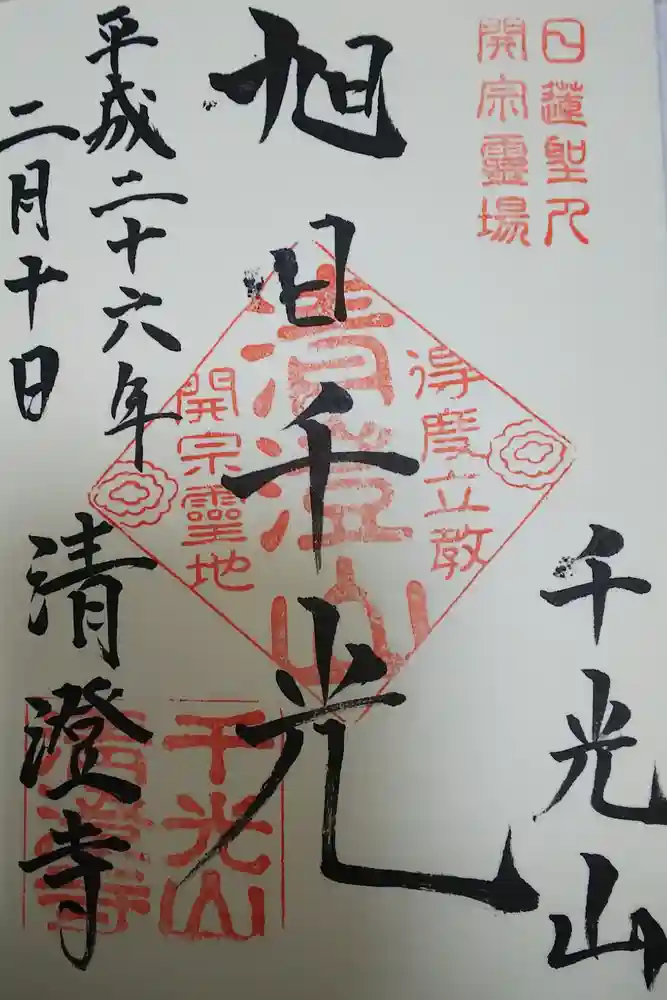 日蓮聖人
開宗霊場
千光山
旭日千光
得度立教
清澄山
開宗霊地
平成二十六年
二月十日
清澄寺
千光山
清澄寺